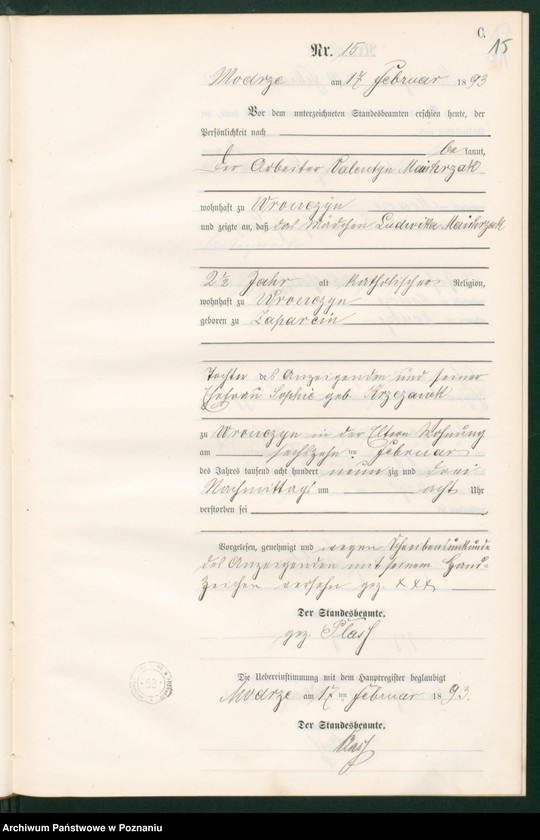 C.
15
Nr. 15
Modrze am 17 Februar 1893
Vor dem unterzeichneten Standesbeamten erschien heute, der
Persönlichkeit nach
be kannt,
der Arbeiter Valentyn Maikrzak
wohnhaft zu Wronczyn
und zeigte an, daß das Mädchen Ludwika Maikrzak
2 ½ Jahr alt katholischer Religion,
wohnhaft zu Wronczyn
geboren zu Zaparcin
Tochter des Anzeigenden und seiner
Ehefrau Sophie geb. Krzczanek
zu Wronczyn in der Eltern Wohnung
am sechszehn ten Februar
des Jahres tausend acht hundert neun zig und drei
Nachmittags um acht Uhr
verstorben sei
Vorgelesen, genehmigt und wegen Schreibensunkunde
des Anzeigenden mit seinem Hand-
zeichen versehn gez. xxx
Der Standesbeamte.
gez.
Die Uebereinstimmung mit dem Hauptregister beglaubigt
Modrze am 17 ten Februar 1893.
Der Standesbeamte.
Archiwum Państwowe w Poznaniu